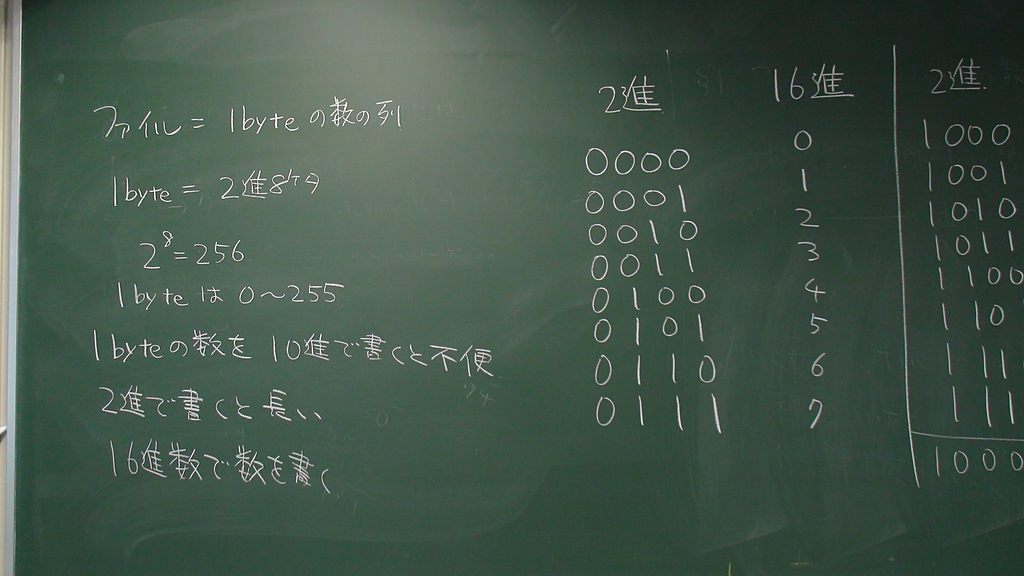 ファイル = 1byteの数の列
1byte = 2進8ケタ
2⁸=256
1byteは 0～255
1byteの数を 10進で書くと不便
2進で書くと長い
16進数で数を書く
2進 16進
0000 0
0001 1
0010 2
0011 3
0100 4
0101 5
0110 6
0111 7
2進
1000
1001
1010
1011
1100
110
111
111
1000